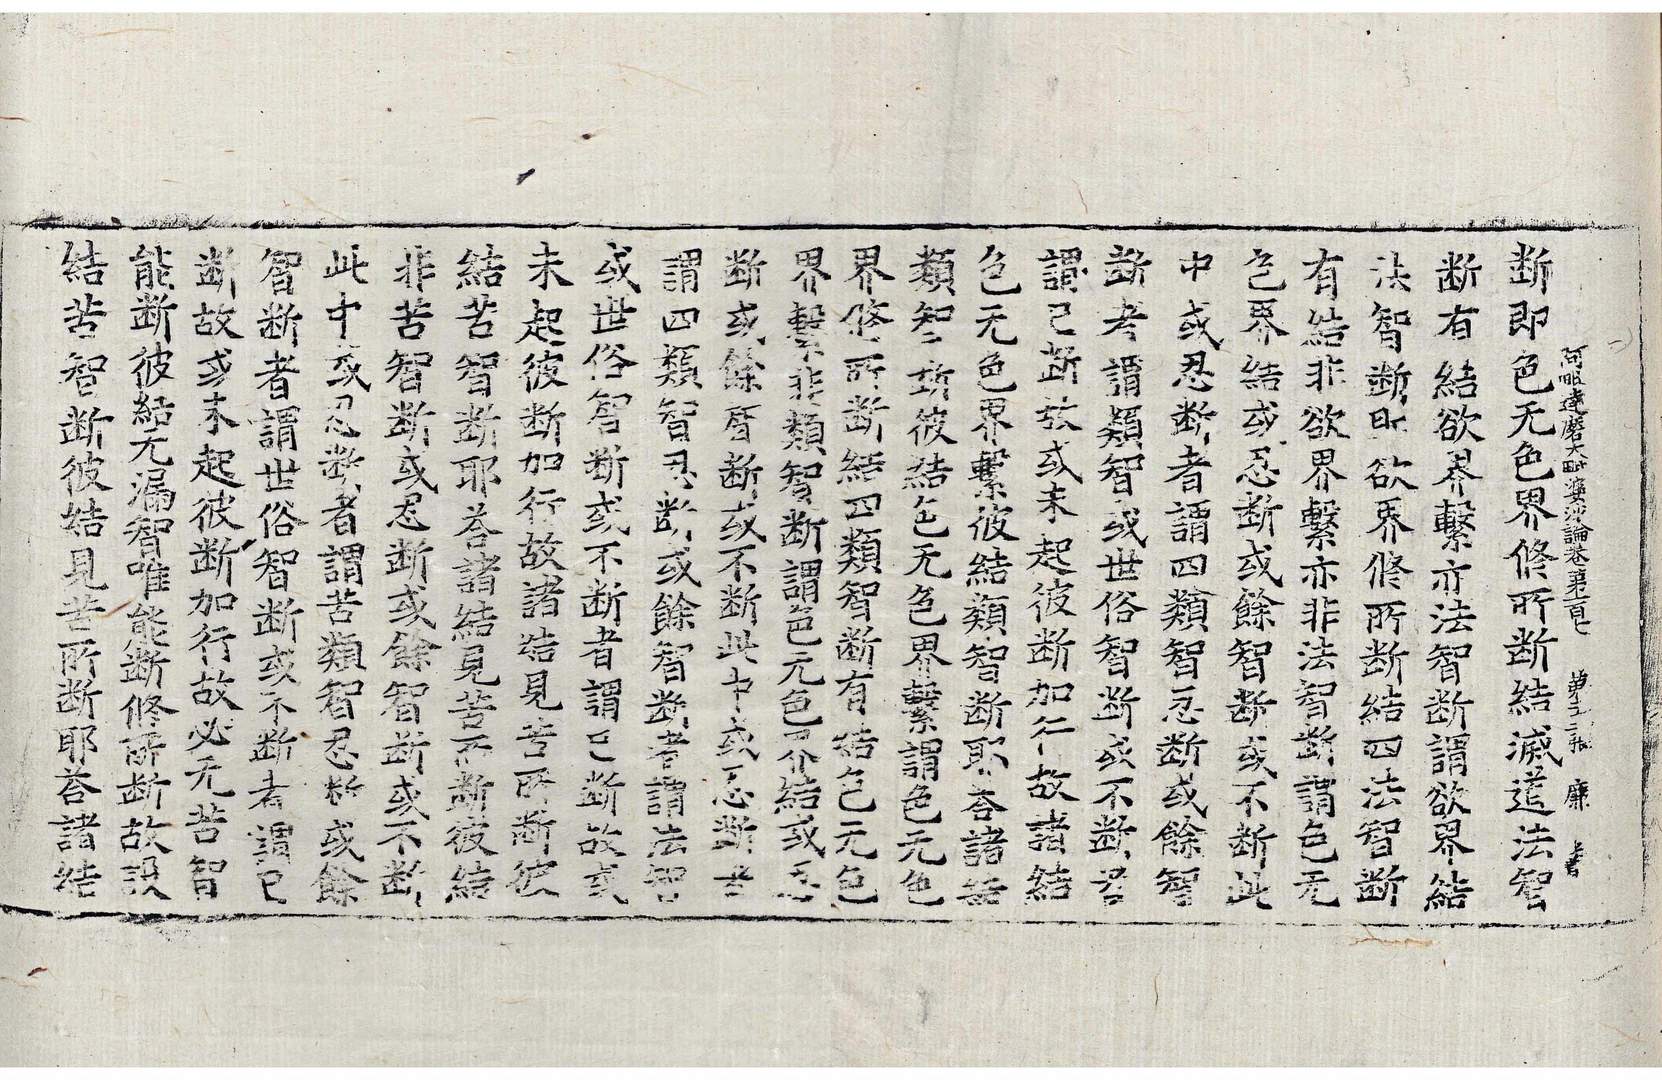 阿毗達磨大毗婆沙論卷第一百七　第十三張　廉　書
断即色无色界修所断結滅道法智
断有結欲界繫亦法智断謂欲界結
法智断即欲界修所断結四法智断
有結非欲界繫亦非法智断謂色无
色界結或忍断或餘智断或不断此
中或忍断者謂四類智忍断或餘智
断者謂類智或世俗智断或不断者
謂已断故或未起彼断加行故諸結
色无色界繫彼結類智断耶答諸結
類智断彼結色无色界繫謂色无色
界修所断結四類智断有結色无色
界繫非類智断謂色无色界結或忍
断或餘智断或不断此中或忍断者
謂四類智忍断或餘智断者謂法智
或世俗智断或不断者謂已断故或
未起彼断加行故諸結見苦所断彼
結苦智断耶答諸結見苦所断彼結
非苦智断或忍断或餘智断或不断
此中或忍断者謂苦類智忍断或餘
智断者謂世俗智断或不断者謂已
断故或未起彼断加行故必无苦智
能断彼結无漏智唯能断修所断故設
結苦智断彼結見苦所断耶荅諸結